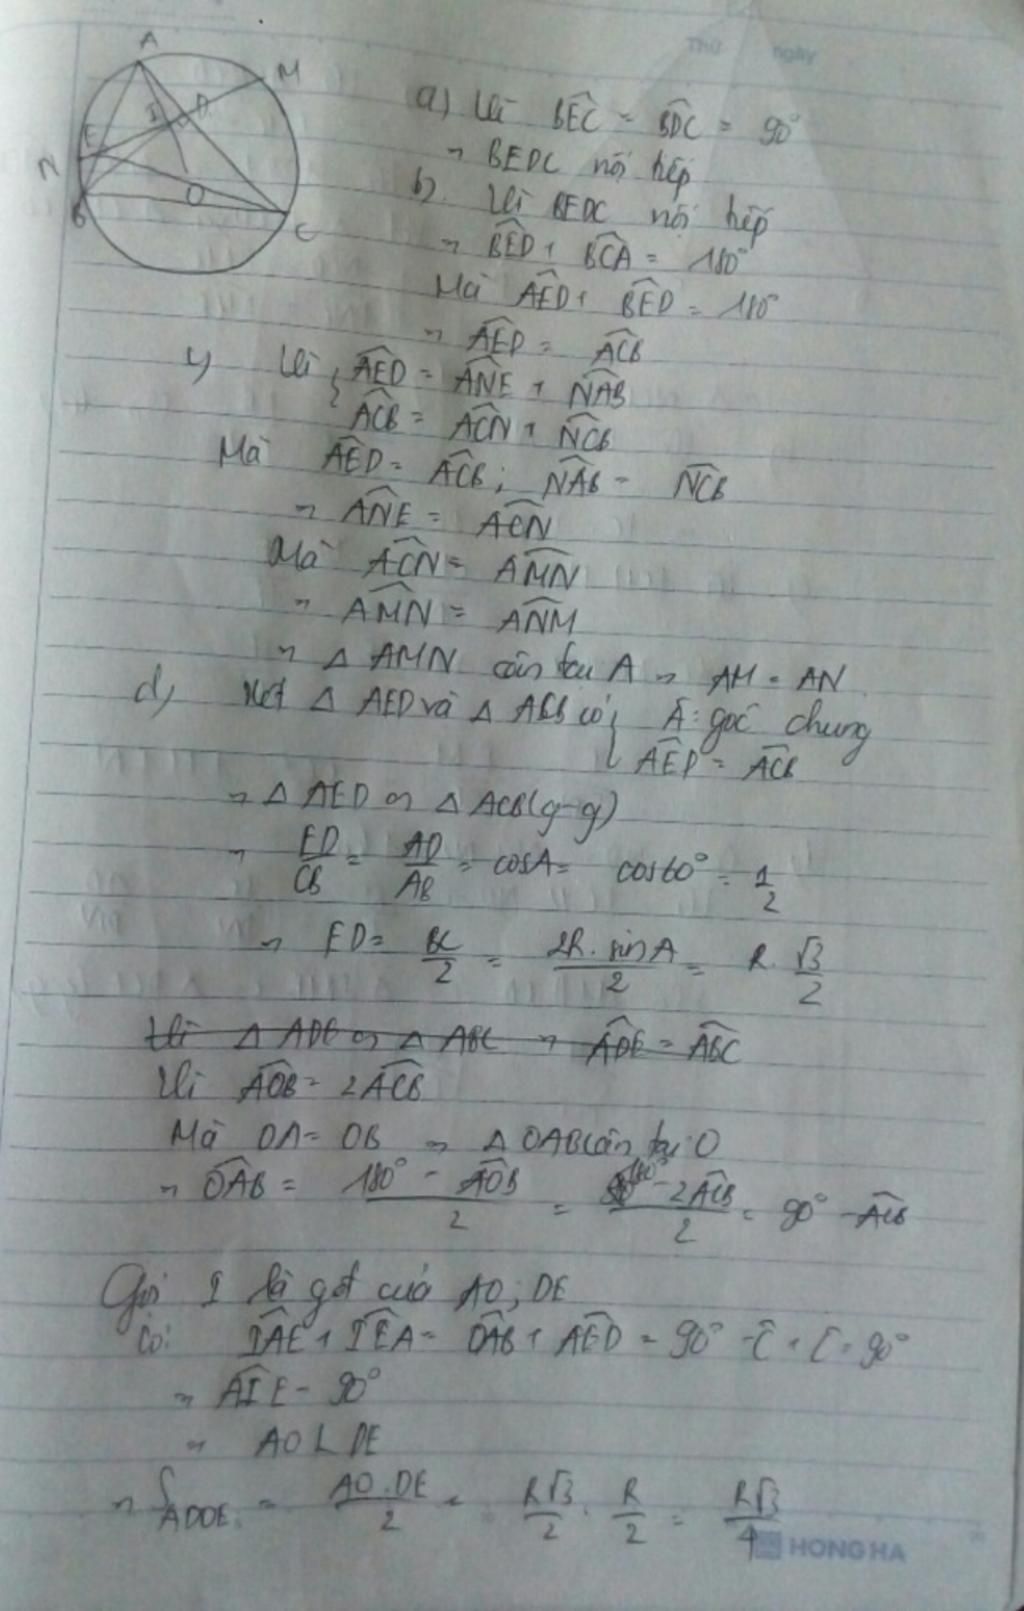 Thứ ngày
A
M
I D
E
N
O
B
C
a) Vì BÊC = BD̂C = 90°
⇒ BEDC nội tiếp
b) Vì BEDC nội tiếp
⇒ BÊD + BĈA = 180°
Mà AÊD + BÊD = 180°
⇒ AÊD = AĈB
c) Vì { AÊD = AN̂E + NÂB
AĈB = AĈN + NĈB
Mà AÊD = AĈB ; NÂB = NĈB
⇒ AN̂E = AĈN
Mà AĈN = AM̂N
⇒ AM̂N = AN̂M
⇒ Δ AMN cân tại A ⇒ AM = AN
d) Xét Δ AED và Δ ACB có { Â : góc chung
AÊD = AĈB
⇒ Δ AED ∽ Δ ACB (g-g)
⇒ ED/CB = AD/AB = cosA = cos60° = 1/2
⇒ ED = BC/2 = 2R.sinA/2 = R.√3/2
Vì Δ ADE ∽ Δ ABC ⇒ AD̂E = AB̂C
Vì AÔB = 2AĈB
Mà OA = OB ⇒ Δ OAB cân tại O
⇒ OÂB = 180° - AÔB/2 = 180° - 2AĈB/2 = 90° - AĈB
Gọi I là gđ của AO ; DE
Có: IÂE + IÊA = OÂB + AÊD = 90° - Ĉ + Ĉ = 90°
⇒ AÎE = 90°
⇒ AO ⊥ DE
⇒ S ADOE = AO.DE/2 = R√3/2 . R/2 = R√3/4
HONG HA